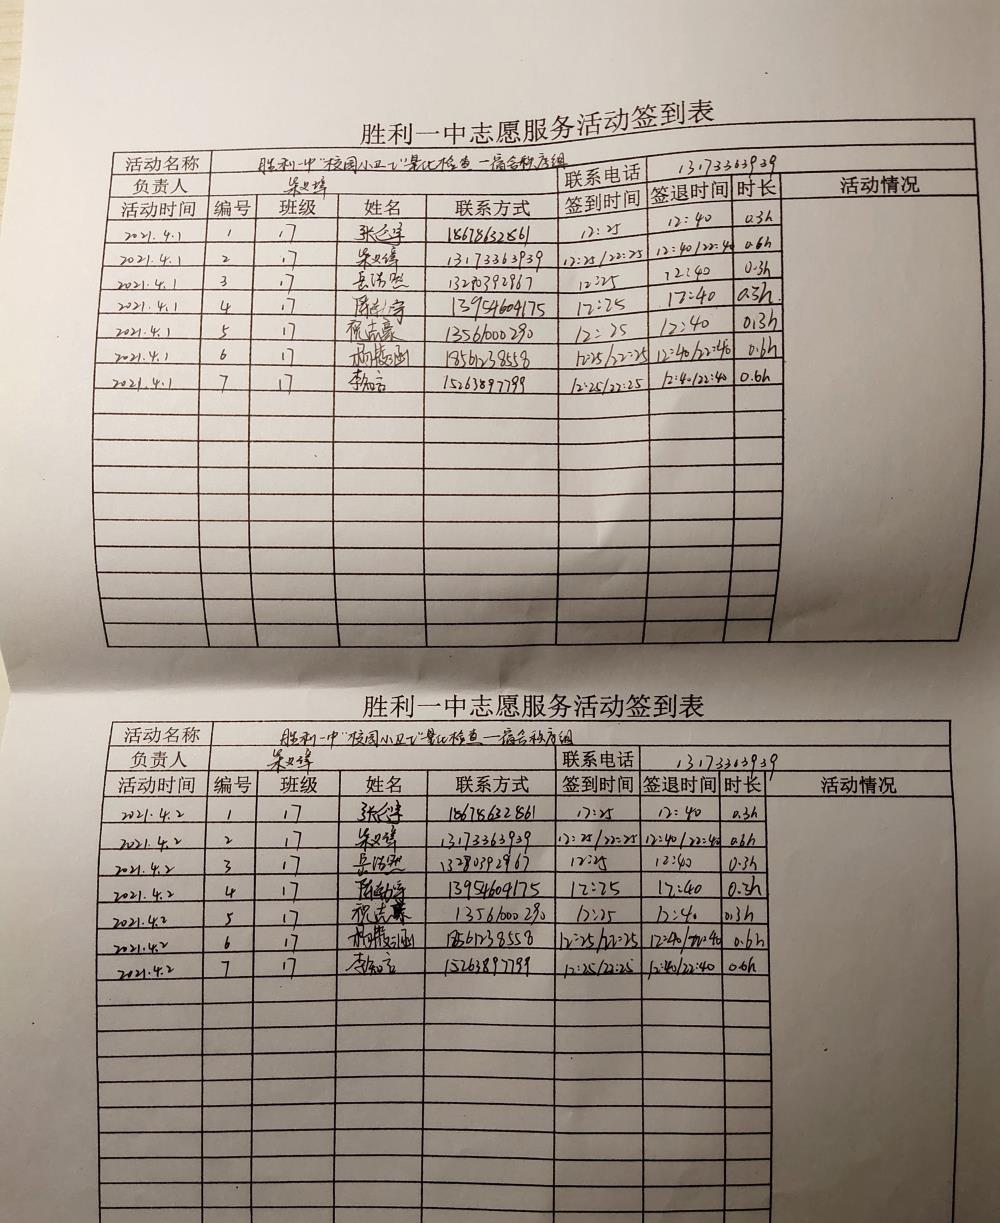 胜利一中志愿服务活动签到表
活动名称 胜利一中"校园小卫士"量化检查—宿舍秩序组
负责人 朱 联系电话 13173363939 活动情况
活动时间 编号 班级 姓名 联系方式 签到时间 签退时间 时长
2021.4.1 1 17 张 18678632861 12:25 12:40 0.3h
2021.4.1 2 17 朱 13173363939 12:25/22:25 12:40/22:40 0.6h
2021.4.1 3 17 岳浩然 13280392967 12:25 12:40 0.3h
2021.4.1 4 17 陈 13954604175 12:25 12:40 0.3h
2021.4.1 5 17 祝志豪 13561000280 12:25 12:40 0.3h
2021.4.1 6 17 杨 涵 18561238558 12:25/22:25 12:40/22:40 0.6h
2021.4.1 7 17 李 言 15263897799 12:25/22:25 12:40/22:40 0.6h
胜利一中志愿服务活动签到表
活动名称 胜利一中"校园小卫士"量化检查—宿舍秩序组
负责人 朱 联系电话 13173363939
活动时间 编号 班级 姓名 联系方式 签到时间 签退时间 时长 活动情况
2021.4.2 1 17 张 18678632861 12:25 12:40 0.3h
2021.4.2 2 17 朱 13173363939 12:25/22:25 12:40/22:40 0.6h
2021.4.2 3 17 岳浩然 13280392967 12:25 12:40 0.3h
2021.4.2 4 17 陈 13954604175 12:25 12:40 0.3h
2021.4.2 5 17 祝志豪 13561000280 12:25 12:40 0.3h
2021.4.2 6 17 杨 涵 18561238558 12:25/22:25 12:40/22:40 0.6h
2021.4.2 7 17 李 言 15263897799 12:25/22:25 12:40/22:40 0.6h